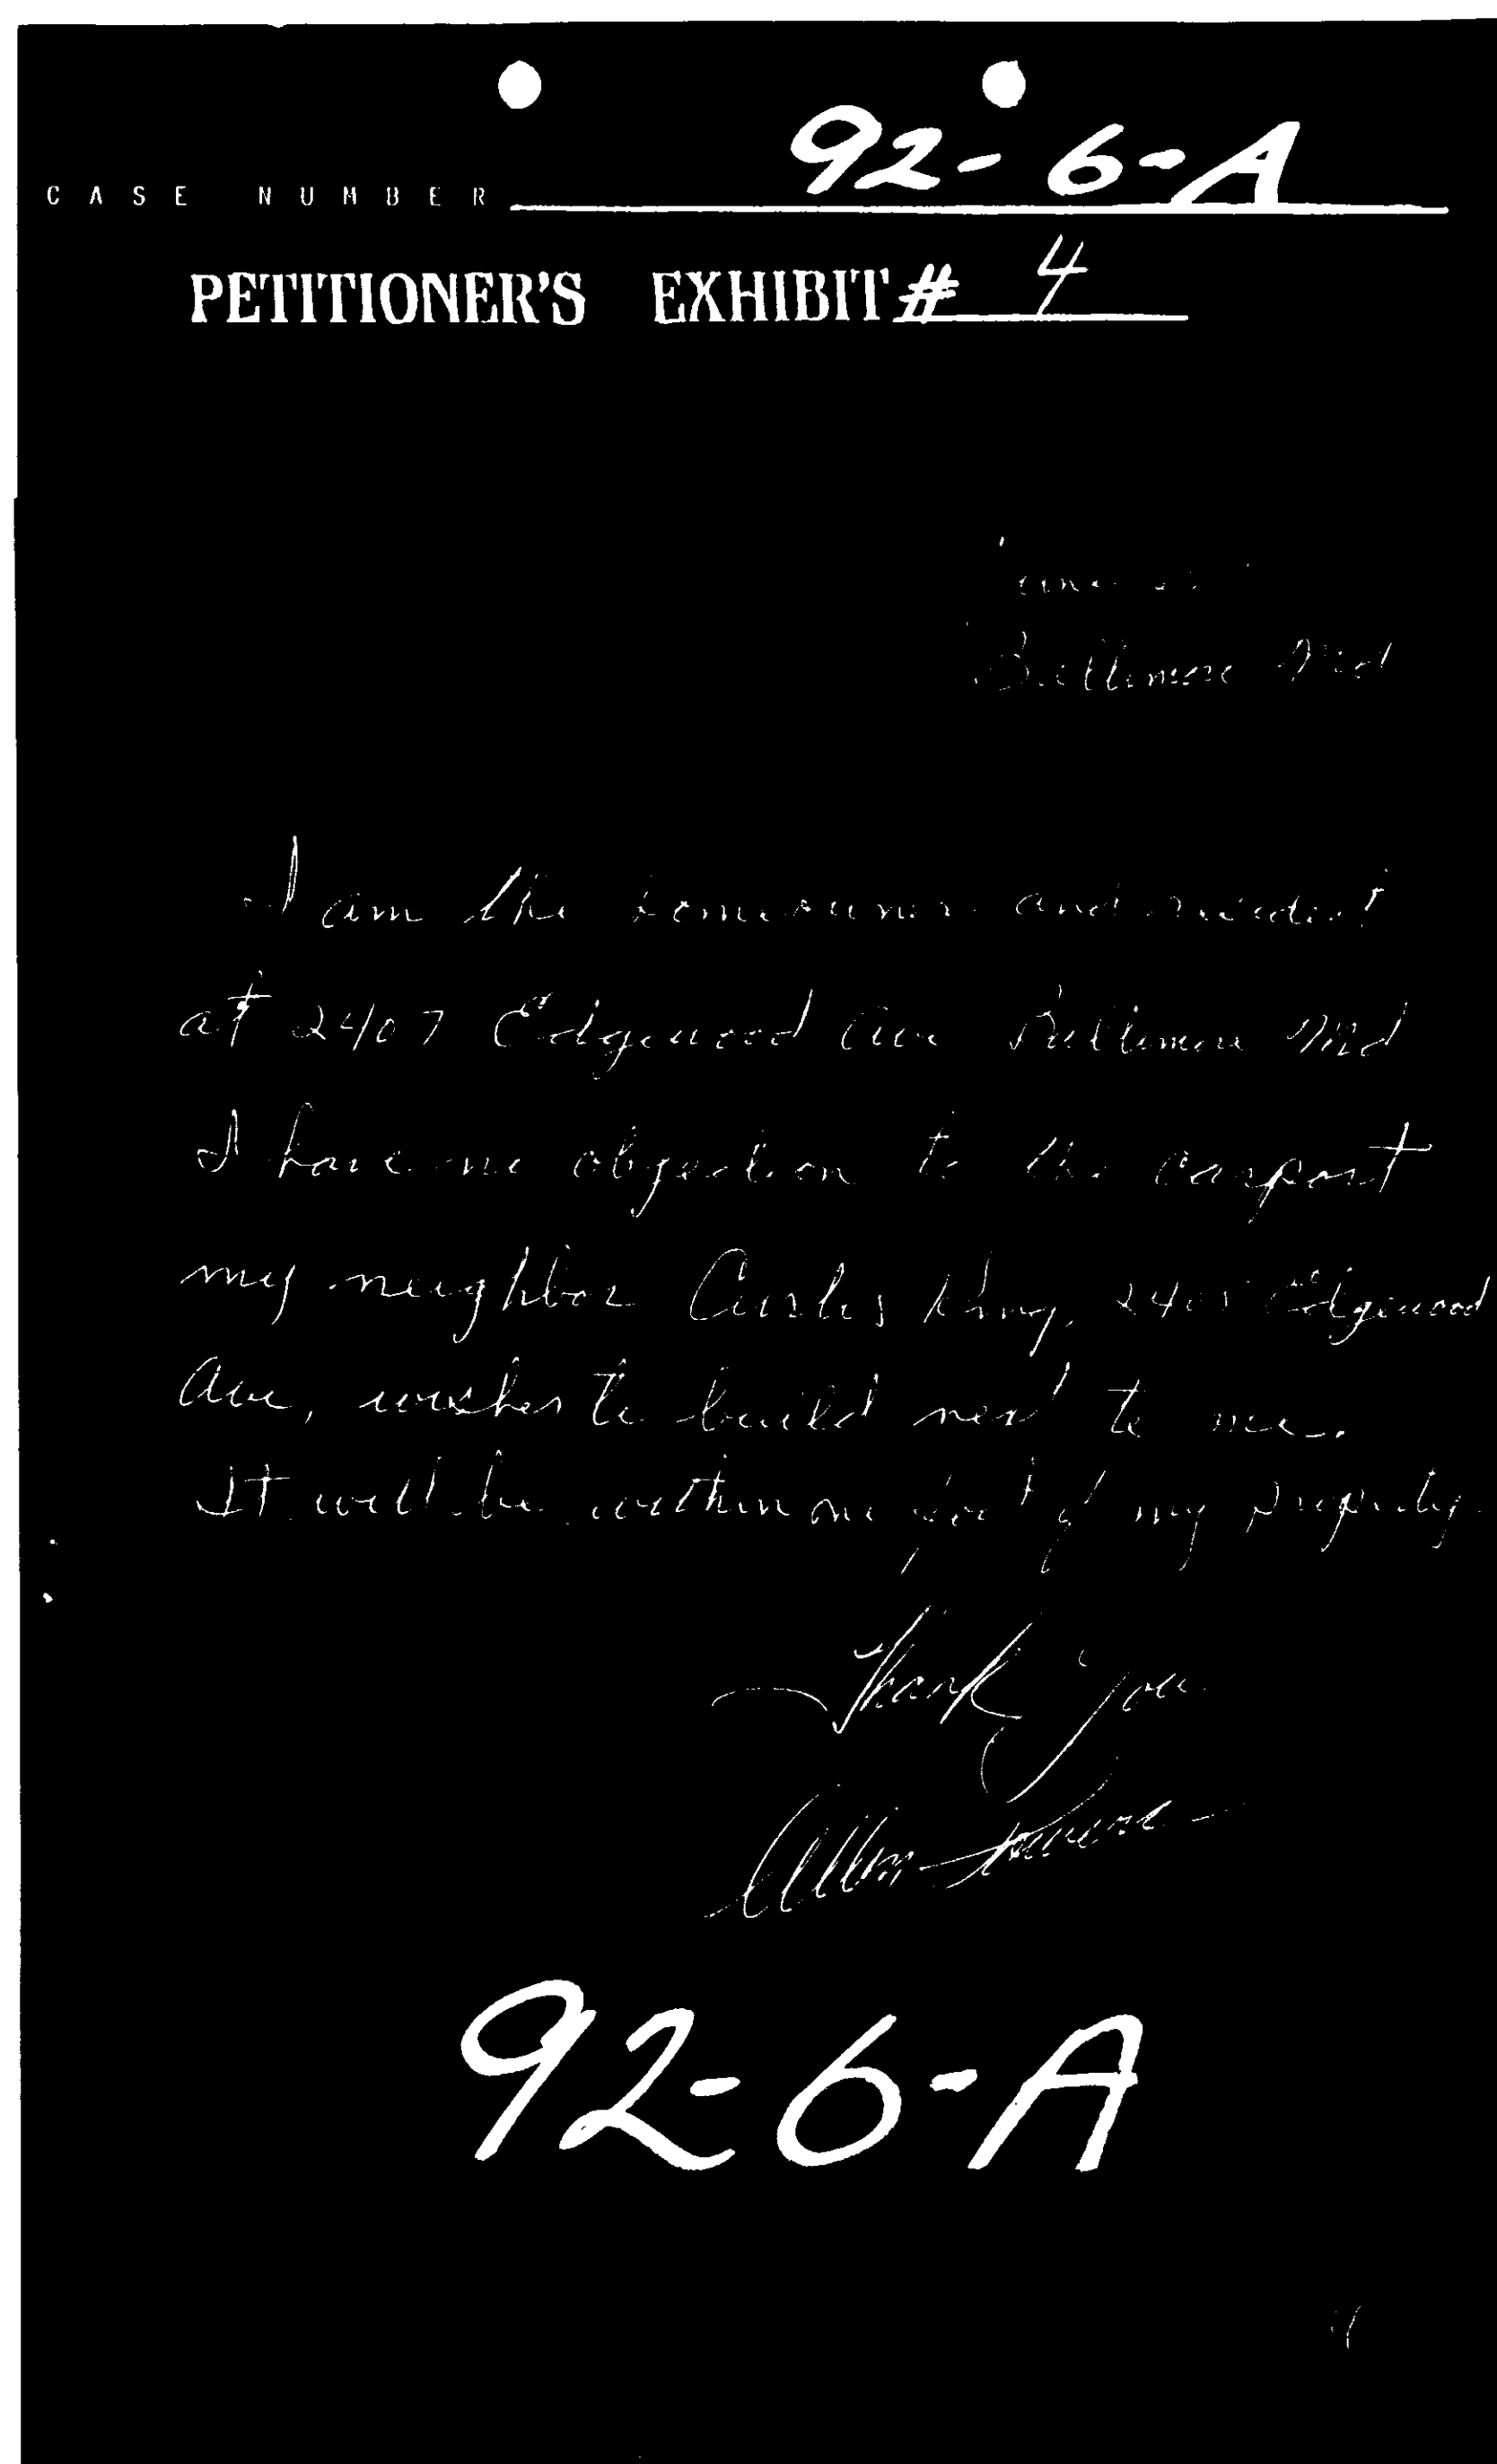 92-6-A
CASE NUMBER
PETITIONER'S EXHIBIT # 4
Baltimore Md
I am the homeowner and resident
at 2407 Edgewood Ave Baltimore Md
I have no objection to the carport
my neighbor Curtis King, Edgewood
Ave, wishes to build next to me.
It will be within one foot of my property.
Thank you
Allen
92-6-A